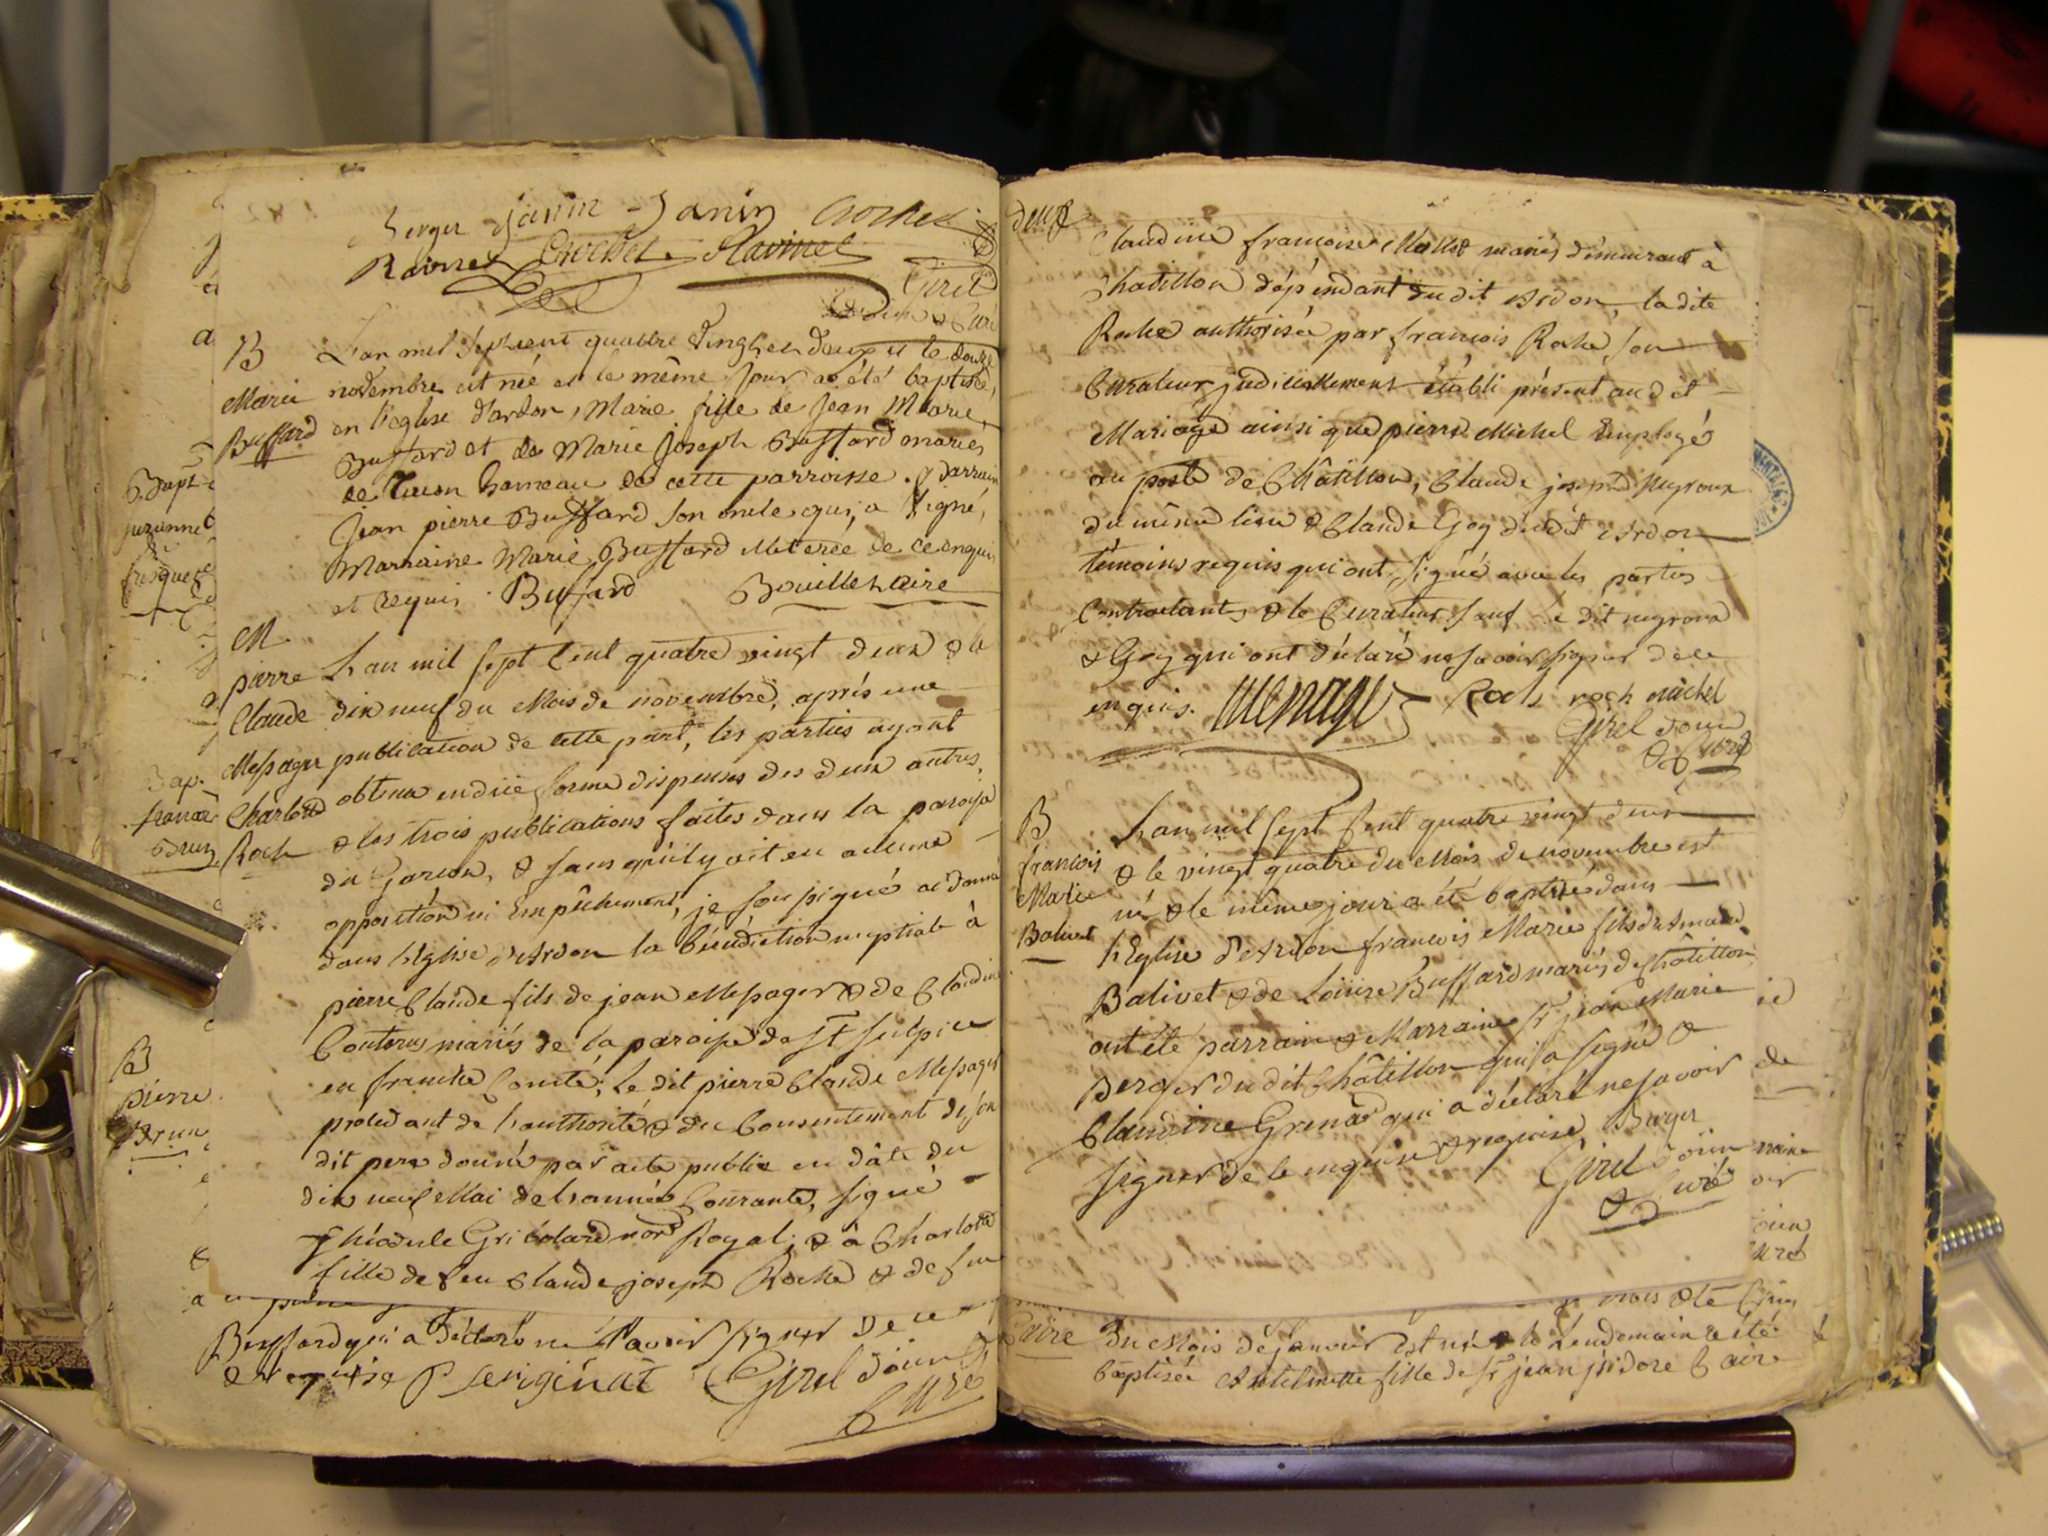 Berger Janin Janin Crochet
Ravinet Crochet Ravinet
Girel
& Curé
B
Marie
Buffard
L'an mil Sept cent quattre vingt et deux et le douze
novembre est née et le même jour a été baptisée,
en l'eglise d'ardon, Marie fille de Jean Marie
Buffard et de Marie Joseph Buffard mariés
de hameau de cette parroisse. parrain
Jean pierre Buffard son oncle qui, a signé,
Marraine Marie Buffard illeteree de ce enquis
et requis. Buffard Bouille vicaire
M
pierre
Claude
Messager
Charlotte
Roch
L'an mil sept Cent quatre vingt deux & le
dix neuf du Mois de novembre, après une
publication de cette part, les parties ayant
obtenu en düe forme dispenses des deux autres,
& les trois publications faites dans la paroisse
du & sans qu'il y ait eu aucune
opposition ni Empêchement, je soussigné ai donné
dans l'Eglise d'Ardon la bénédiction nuptiale à
pierre Claude fils de jean Messager & de Claudine
mariés de la paroisse de St sulpice
en franche Comté; le dit pierre Claude Messager
procedant de l'authorité & du Consentement de son
dit pere donné par acte public en dâte du
dix neuf Mai de l'année Courante, signé
nore Royal; & à Charlotte
fille de feu Claude joseph Roche & de feue
Buffard qui a déclaré ne savoir signer de ce
& requise P Serigenat Girel doien &
Curé
Bapt
suzanne
Bap.
B
pierre
Brun
deux
Claudine francoise Mallet mariés démeurant à
Chatillon dépendant du dit Ardon, la dite
Roche authorisée par francois Roche, son
Curateur judiciellement établi présent au dit
Mariage ainsi que pierre Michel Employé
au poste de Châtillon, Claude joseph Neyroux
du même lieu & Claude Goy du dit Ardon
témoins requis qui ont signé avec les parties
Contractantes & le Curateur sauf Le dit neyroux
& Goy qui ont déclaré ne savoir signer de ce
enquis. Messager Roch roch michel
Girel doien
& Curé
B
francois
Marie
Balivet
L'an mil sept Cent quatre vingt deux
& le vingt quatre du Mois de novembre est
né & le même jour a été baptisé dans
l'Eglise d'Ardon francois Marie fils d'Armand
Balivet & de Louise Buffard mariés de Châtillon
ont été parrain & Marraine Sr jean Marie
Berger du dit Châtillon qui a signé &
Claudine Grenard qui a déclaré ne savoir
signer de ce enquise & requise, Berger
Girel doien
& Curé
de
Caire
du Mois de janvier est née & le Lendemain a été
baptisée fille de Sr jean isidore Caire